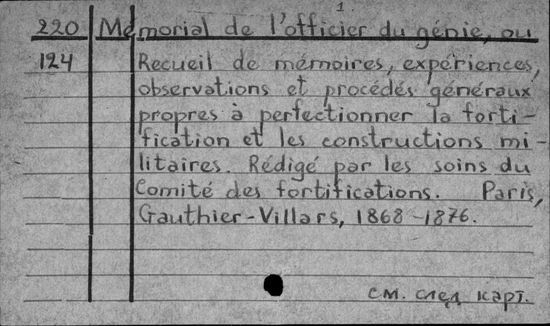 1.
220 Mémorial de l'officier du génie, ou
124 Recueil de mémoires, expériences,
observations et procédés généraux
propres à perfectionner la forti-
fication et les constructions mi-
litaires. Rédigé par les soins du
Comité des fortifications. Paris,
Gauthier-Villars, 1868-1876.
см. след карт.